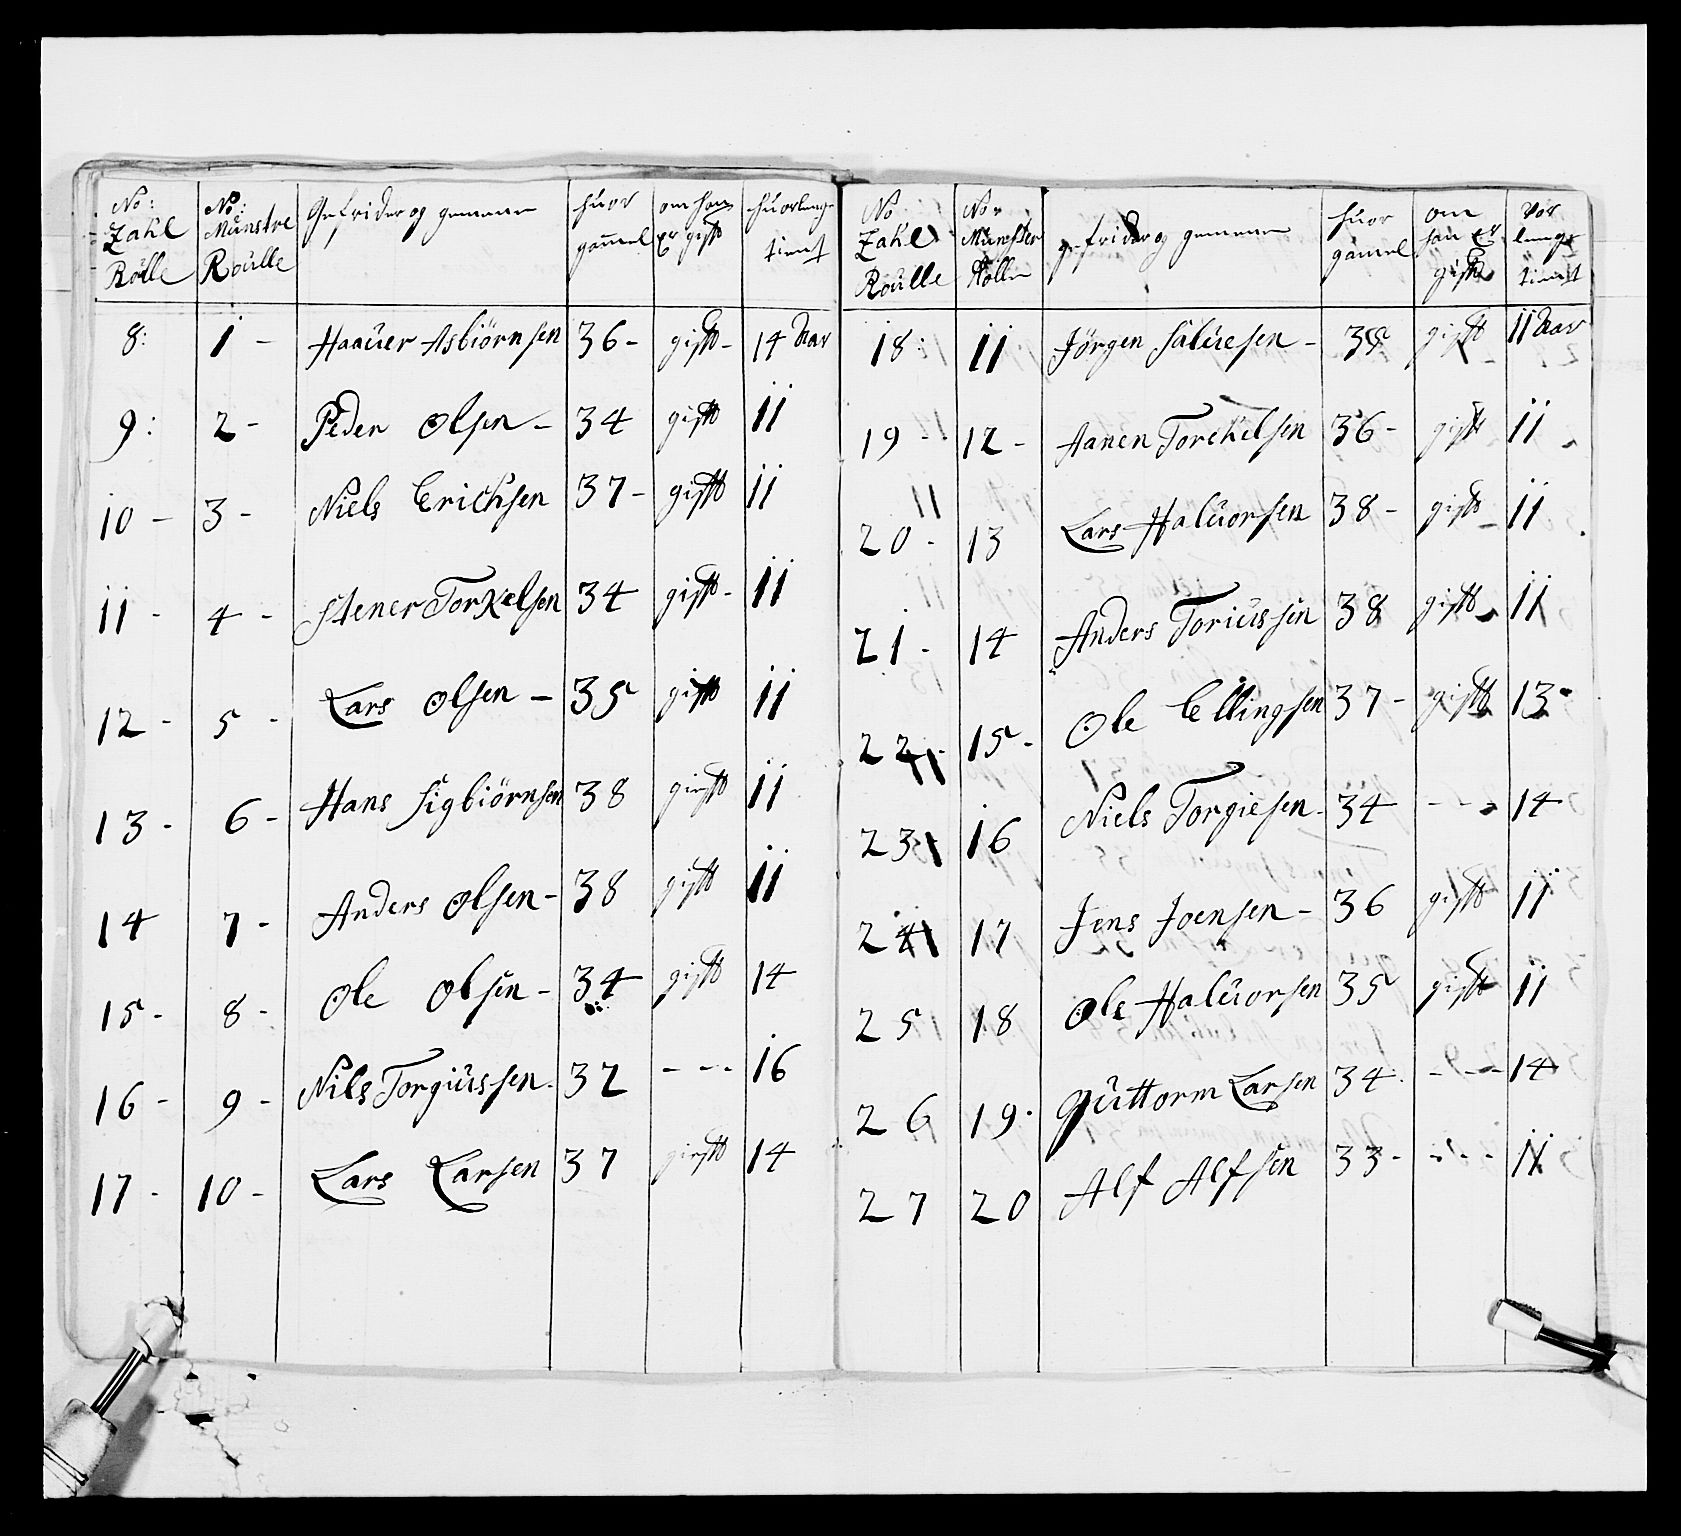 No: Zahl Rölle | No: Münstre Roulle | Gefrider og gemeene | huor gammel | om han er gift | huorlenge tient
8: | 1 - | Haauer Asbiörnsen | 36 - | gift - | 14 Aar
9: | 2 - | Peder Olsen - | 34 | gift | 11
10 - | 3 - | Niels Erichsen | 37 - | gift | 11
11 - | 4 - | Stener Torkelsen | 34 | gift - | 11
12 - | 5 - | Lars Olsen - | 35 | gift | 11
13 - | 6 - | Hans Sigbiörnsen | 38 | gift | 11
14 | 7 - | Anders Olsen - | 38 | gift | 11
15 - | 8 - | Ole Olsen - | 34 | gift | 14
16 - | 9 - | Nils Torgiüssen - | 32 | - - - | 16
17 - | 10 - | Lars Larsen | 37 | gift | 14
No Zahl Roulle | No Münster Rolle | gefrider og gemeene | huor gammel | om han er gift | lenge tient
18: | 11 | Jörgen Salüesen - | 35 | gift | 11 Aar
19 - | 12 - | Aanen Torchelsen | 36 - | gift | 11
20 - | 13 | Lars Halüorsen | 38 - | gift | 11
21 - | 14 | Anders Toriüssen | 38 | gift | 11
22 - | 15 - | Ole Ellingsen | 37 - | gift | 13
23 | 16 | Niels Torgiesen - | 34 | - - - | 14
24 | 17 | Jens Joensen - | 36 | gift | 11
25 | 18 | Ole Halüorsen | 35 | gift | 11
26 | 19 - | Güttorm Larsen | 34 | - - - | 14
27 | 20 | Alf Alfsen | 33 - | - - - | 11